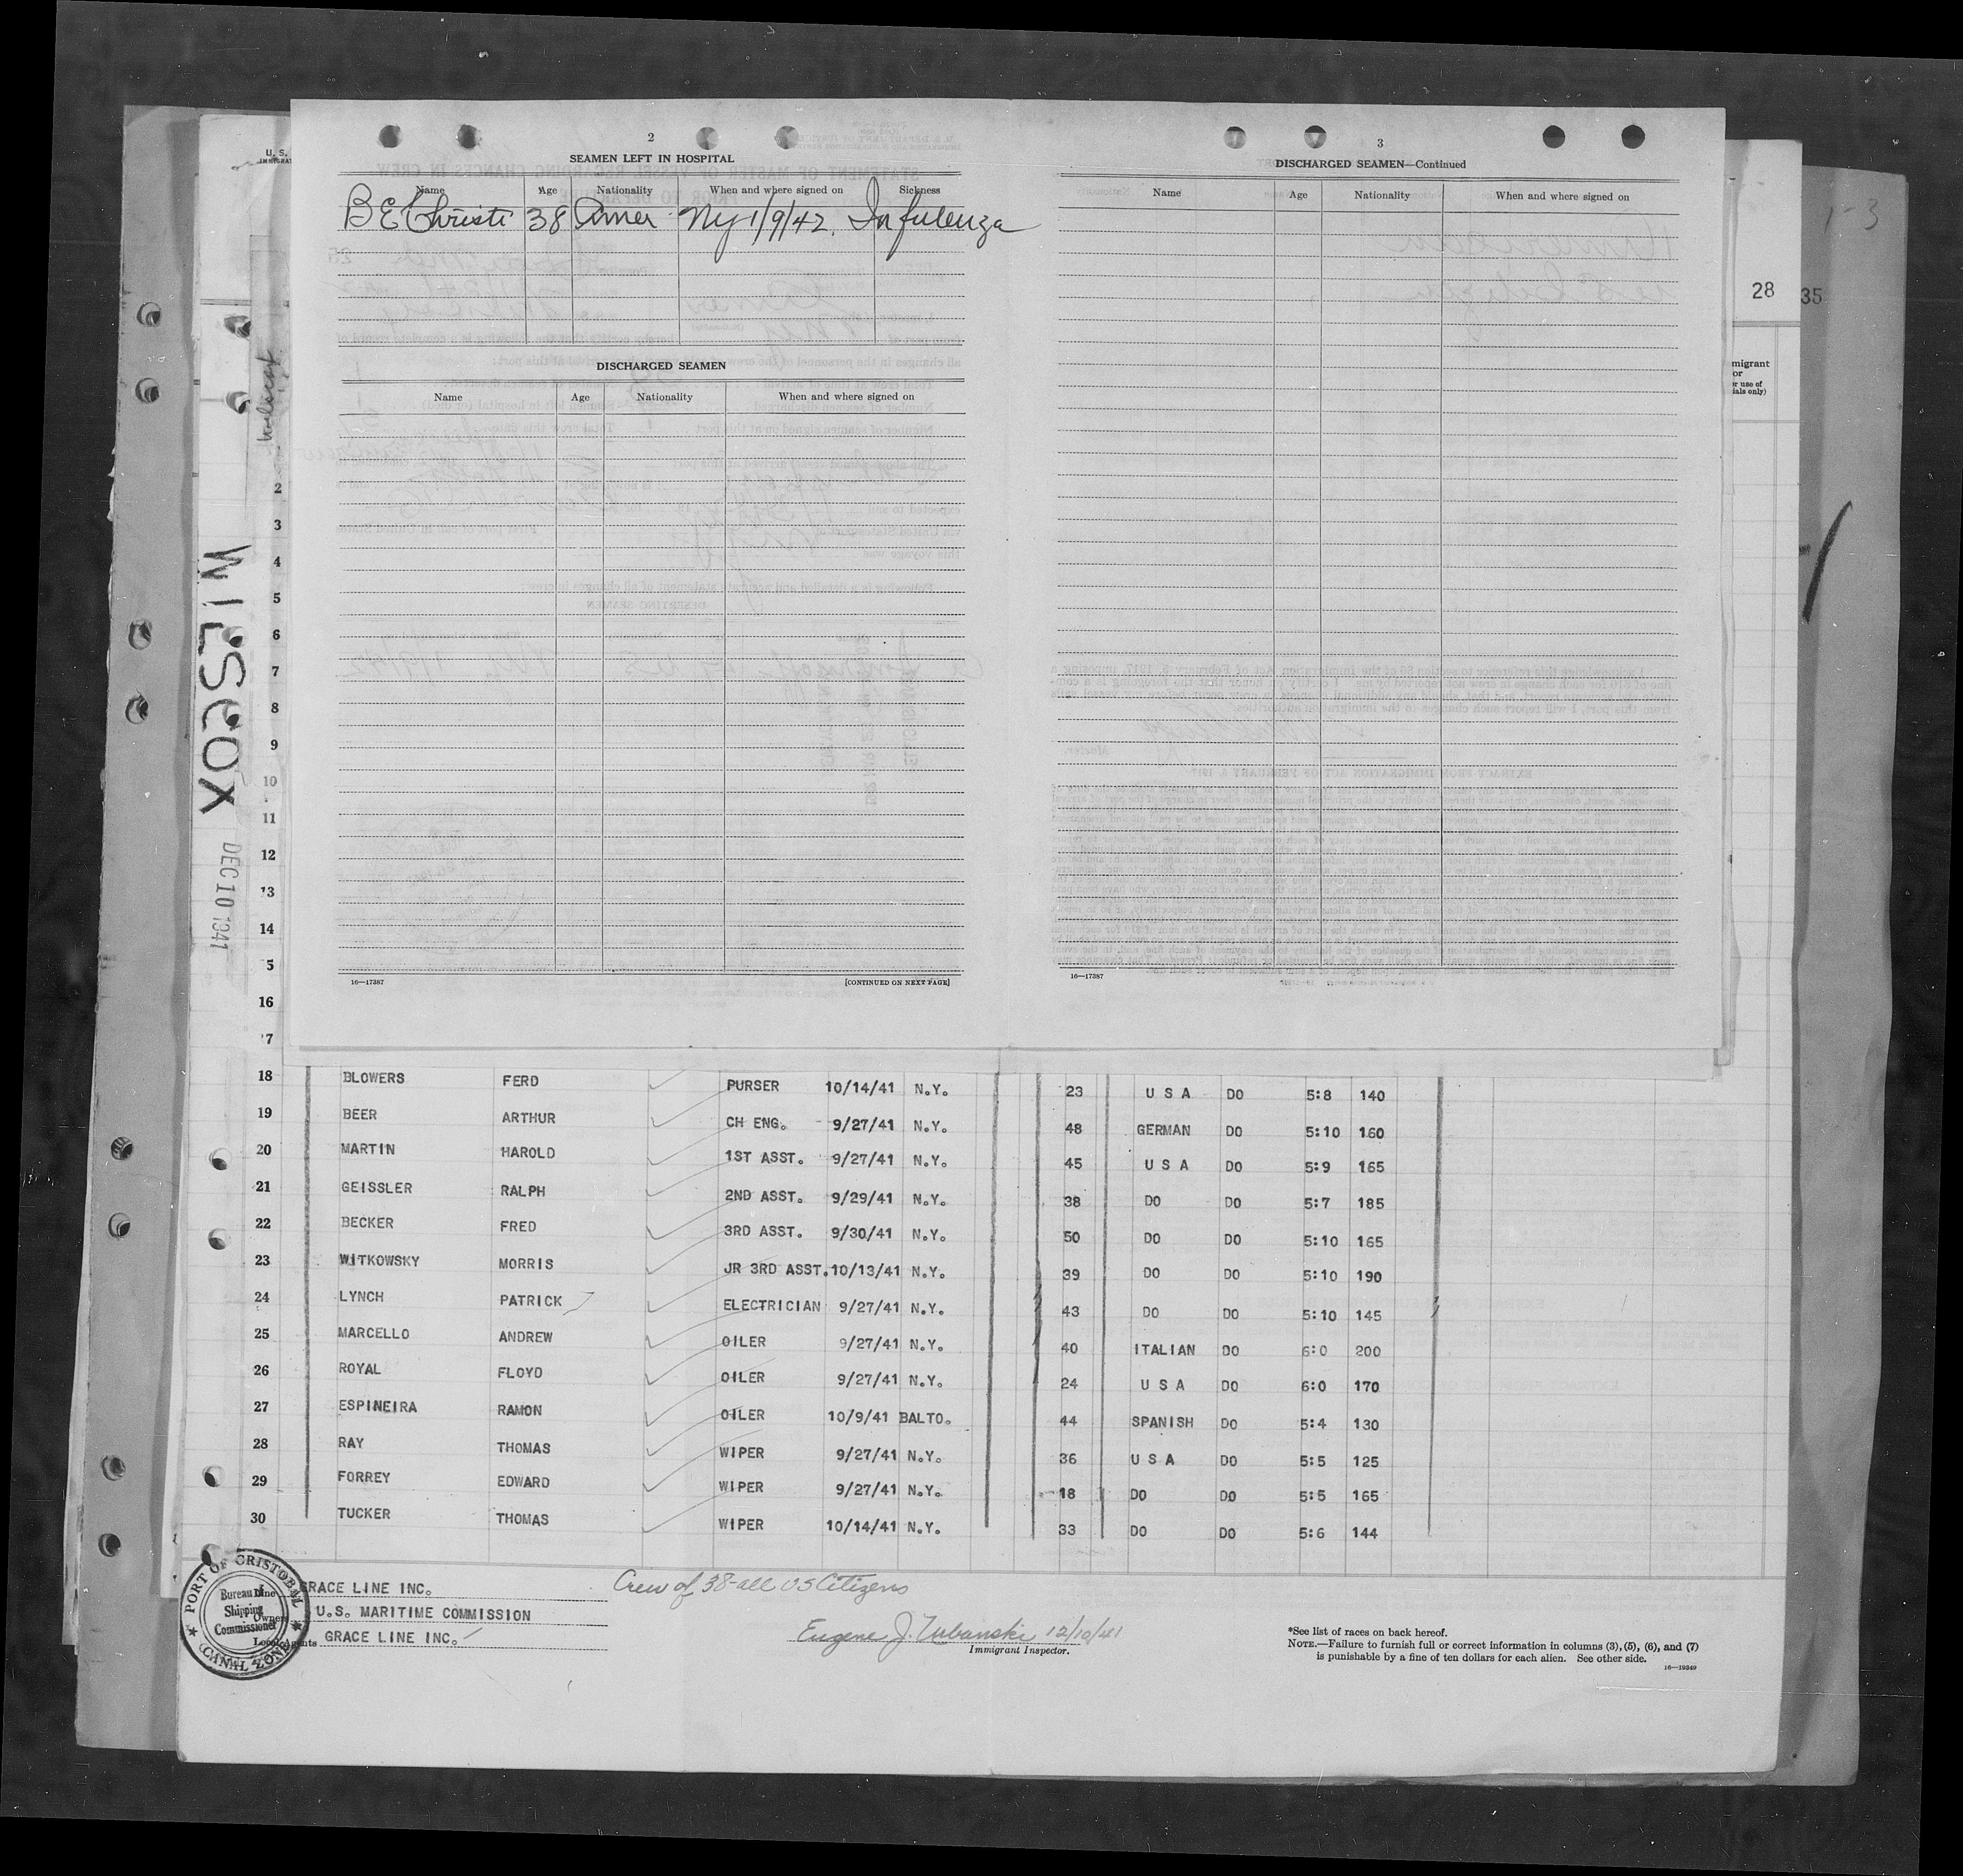 2
SEAMEN LEFT IN HOSPITAL
Name Age Nationality When and where signed on Sickness
B E Christi 38 Amer Ny 1/9/42. Infulenza
DISCHARGED SEAMEN
Name Age Nationality When and where signed on
16—17387 [CONTINUED ON NEXT PAGE]
3
DISCHARGED SEAMEN—Continued
Name Age Nationality When and where signed on
16—17387
1-3
28
35
U. S.
migrant
or
r use of
ials only)
WILSCOX
DEC 10 1941
2
3
4
5
6
7
8
9
10
11
12
13
14
5
16
7
18 BLOWERS FERD PURSER 10/14/41 N.Y. 23 U S A DO 5:8 140
19 BEER ARTHUR CH ENG. 9/27/41 N.Y. 48 GERMAN DO 5:10 160
20 MARTIN HAROLD 1ST ASST. 9/27/41 N.Y. 45 U S A DO 5:9 165
21 GEISSLER RALPH 2ND ASST. 9/29/41 N.Y. 38 DO DO 5:7 185
22 BECKER FRED 3RD ASST. 9/30/41 N.Y. 50 DO DO 5:10 165
23 WITKOWSKY MORRIS JR 3RD ASST. 10/13/41 N.Y. 39 DO DO 5:10 190
24 LYNCH PATRICK ELECTRICIAN 9/27/41 N.Y. 43 DO DO 5:10 145
25 MARCELLO ANDREW OILER 9/27/41 N.Y. 40 ITALIAN DO 6:0 200
26 ROYAL FLOYD OILER 9/27/41 N.Y. 24 U S A DO 6:0 170
27 ESPINEIRA RAMON OILER 10/9/41 BALTO. 44 SPANISH DO 5:4 130
28 RAY THOMAS WIPER 9/27/41 N.Y. 36 U S A DO 5:5 125
29 FORREY EDWARD WIPER 9/27/41 N.Y. 18 DO DO 5:5 165
30 TUCKER THOMAS WIPER 10/14/41 N.Y. 33 DO DO 5:6 144
PORT OF CRISTOBAL
Bureau of
Shipping
Commissioner
CANAL ZONE
Line GRACE LINE INC.
Owners U.S. MARITIME COMMISSION
Local Agents GRACE LINE INC.
Crew of 38-all US Citizens
Eugene J. Zubanski 12/10/41
Immigrant Inspector.
*See list of races on back hereof.
NOTE.—Failure to furnish full or correct information in columns (3), (5), (6), and (7)
is punishable by a fine of ten dollars for each alien. See other side.
16—19349